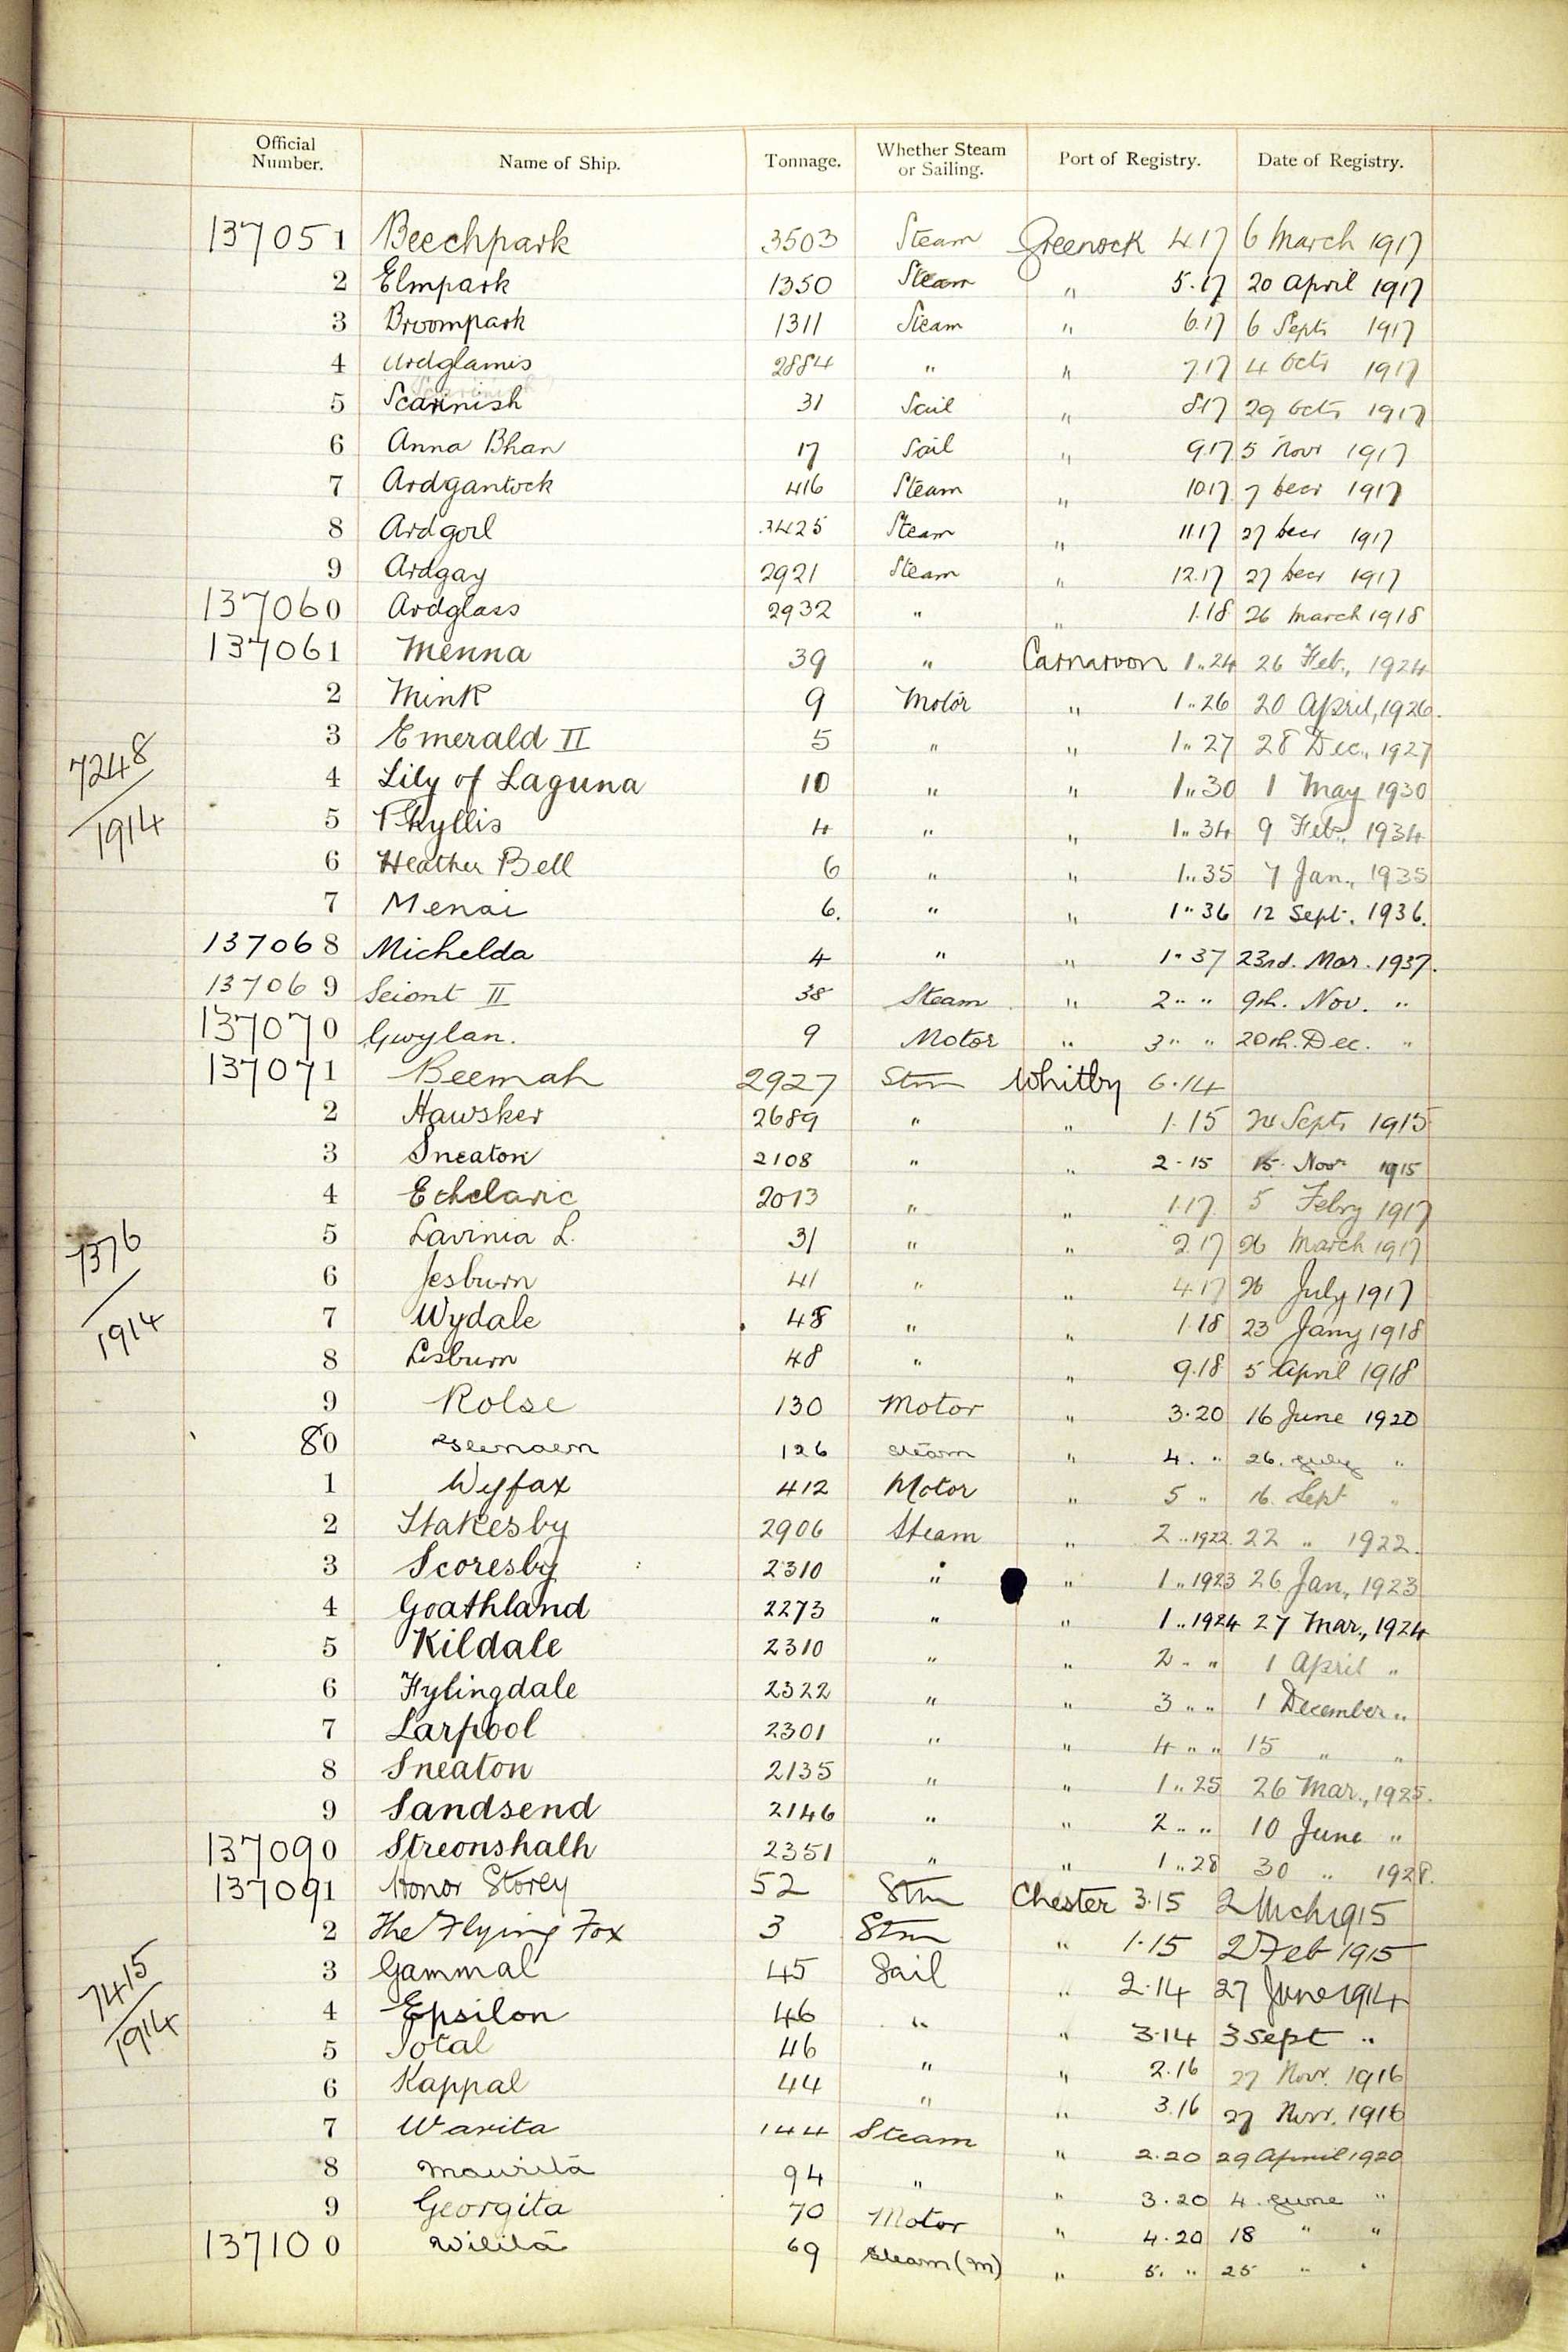 Official Number. Name of Ship. Tonnage. Whether Steam or Sailing. Port of Registry. Date of Registry.
137051 Beechpark 3503 Steam Greenock 4.17 6 March 1917
2 Elmpark 1350 Steam " 5.17 20 April 1917
3 Broompark 1311 Steam " 6.17 6 Septr 1917
4 Ardglamis 2884 " " 7.17 4 Octr 1917
5 Scarinish 31 Sail " 8.17 29 Octr 1917
6 Anna Bhan 17 Sail " 9.17 5 Novr 1917
7 Ardgantock 416 Steam " 10.17 7 Decr 1917
8 Ardgoil 3425 Steam " 11.17 27 Decr 1917
9 Ardgay 2921 Steam " 12.17 27 Decr 1917
137060 Ardglass 2932 " " 1.18 26 March 1918
137061 Menna 39 " Carnarvon 1..24 26 Feb., 1924
2 Mink 9 Motor " 1..26 20 April, 1926.
3 Emerald II 5 " " 1..27 28 Dec., 1927
7248/1914
4 Lily of Laguna 10 " " 1..30 1 May 1930
5 Phyllis 4 " " 1..34 9 Feb., 1934
6 Heather Bell 6 " " 1..35 7 Jan., 1935
7 Menai 6. " " 1..36 12 Sept. 1936.
137068 Michelda 4 " " 1..37 23rd. Mar. 1937.
137069 Seiont II 38 Steam " 2.. " 9th. Nov. "
137070 Gwylan. 9 Motor " 3.. " 20th. Dec. "
137071 Beemah 2927 Stm Whitby 6.14
2 Hawsker 2689 " " 1.15 24 Septr 1915
3 Sneaton 2108 " " 2.15 15 Novr 1915
4 Ethelaric 2013 " " 1.17 5 Febry 1917
5 Lavinia L. 31 " " 2.17 26 March 1917
7376/1914
6 Jesburn 41 " " 4.17 26 July 1917
7 Wydale 48 " " 1.18 23 Jany 1918
8 Lisburn 48 " " 9.18 5 April 1918
9 Rolse 130 Motor " 3.20 16 June 1920
80 126 Steam " 4. " 26. July "
1 Wyfax 412 Motor " 5 " 16. Sept "
2 Stakesby 2906 Steam " 2..1922 22 " 1922.
3 Scoresby 2310 " " 1..1923 26 Jan., 1923
4 Goathland 2273 " " 1..1924 27 Mar., 1924
5 Kildale 2310 " " 2.. " 1 April "
6 Fylingdale 2322 " " 3.. " 1 December "
7 Larpool 2301 " " 4.. " 15 " "
8 Sneaton 2135 " " 1..25 26 Mar., 1925.
9 Sandsend 2146 " " 2.. " 10 June "
137090 Streonshalh 2351 " " 1..28 30 " 1928.
137091 Honor Storey 52 Stm Chester 3.15 2 Mch 1915
2 The Flying Fox 3 Stm " 1.15 2 Feb 1915
3 Gammal 45 Sail " 2.14 27 June 1914
7415/1914
4 Epsilon 46 " " 3.14 3 Sept "
5 Jotal 46 " " 2.16 27 Novr. 1916
6 Kappal 44 " " 3.16 27 Novr. 1916
7 Warita 144 Steam " 2.20 29 April 1920
8 Maurita 94 " " 3.20 4. June "
9 Georgita 70 Motor " 4.20 18 " "
137100 Wilita 69 Steam (M) " 5. " 25 " "